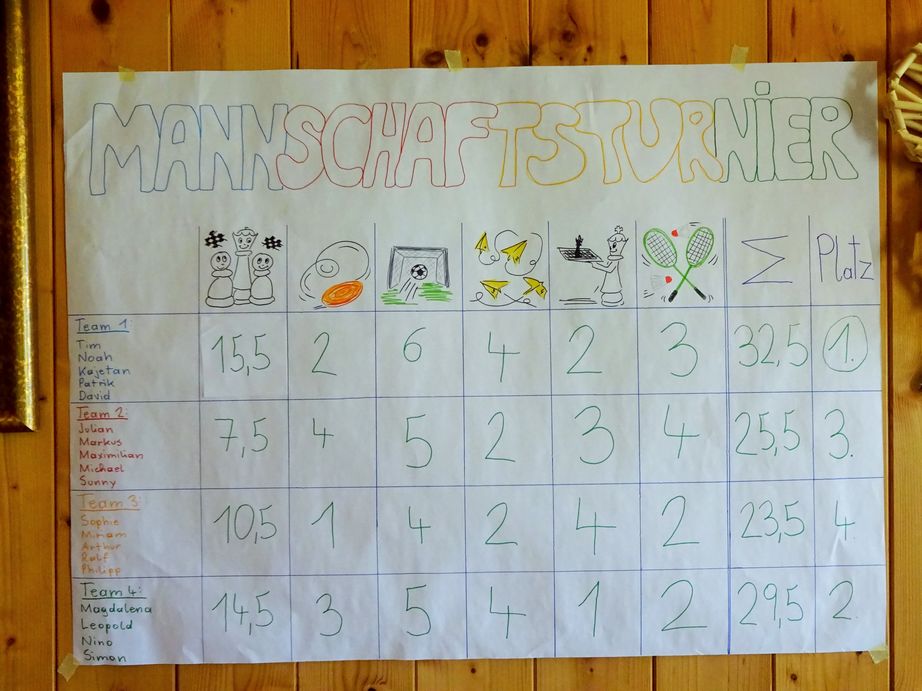 MANNSCHAFTSTURNiER
Σ Platz
Team 1:
Tim
Noah
Kajetan
Patrik
David
15,5 2 6 4 2 3 32,5 1.
Team 2:
Julian
Markus
Maximilian
Michael
Sunny
7,5 4 5 2 3 4 25,5 3.
Team 3:
Sophie
Miriam
Arthur
Ralf
Philipp
10,5 1 4 2 4 2 23,5 4.
Team 4:
Magdalena
Leopold
Nino
Simon
14,5 3 5 4 1 2 29,5 2.